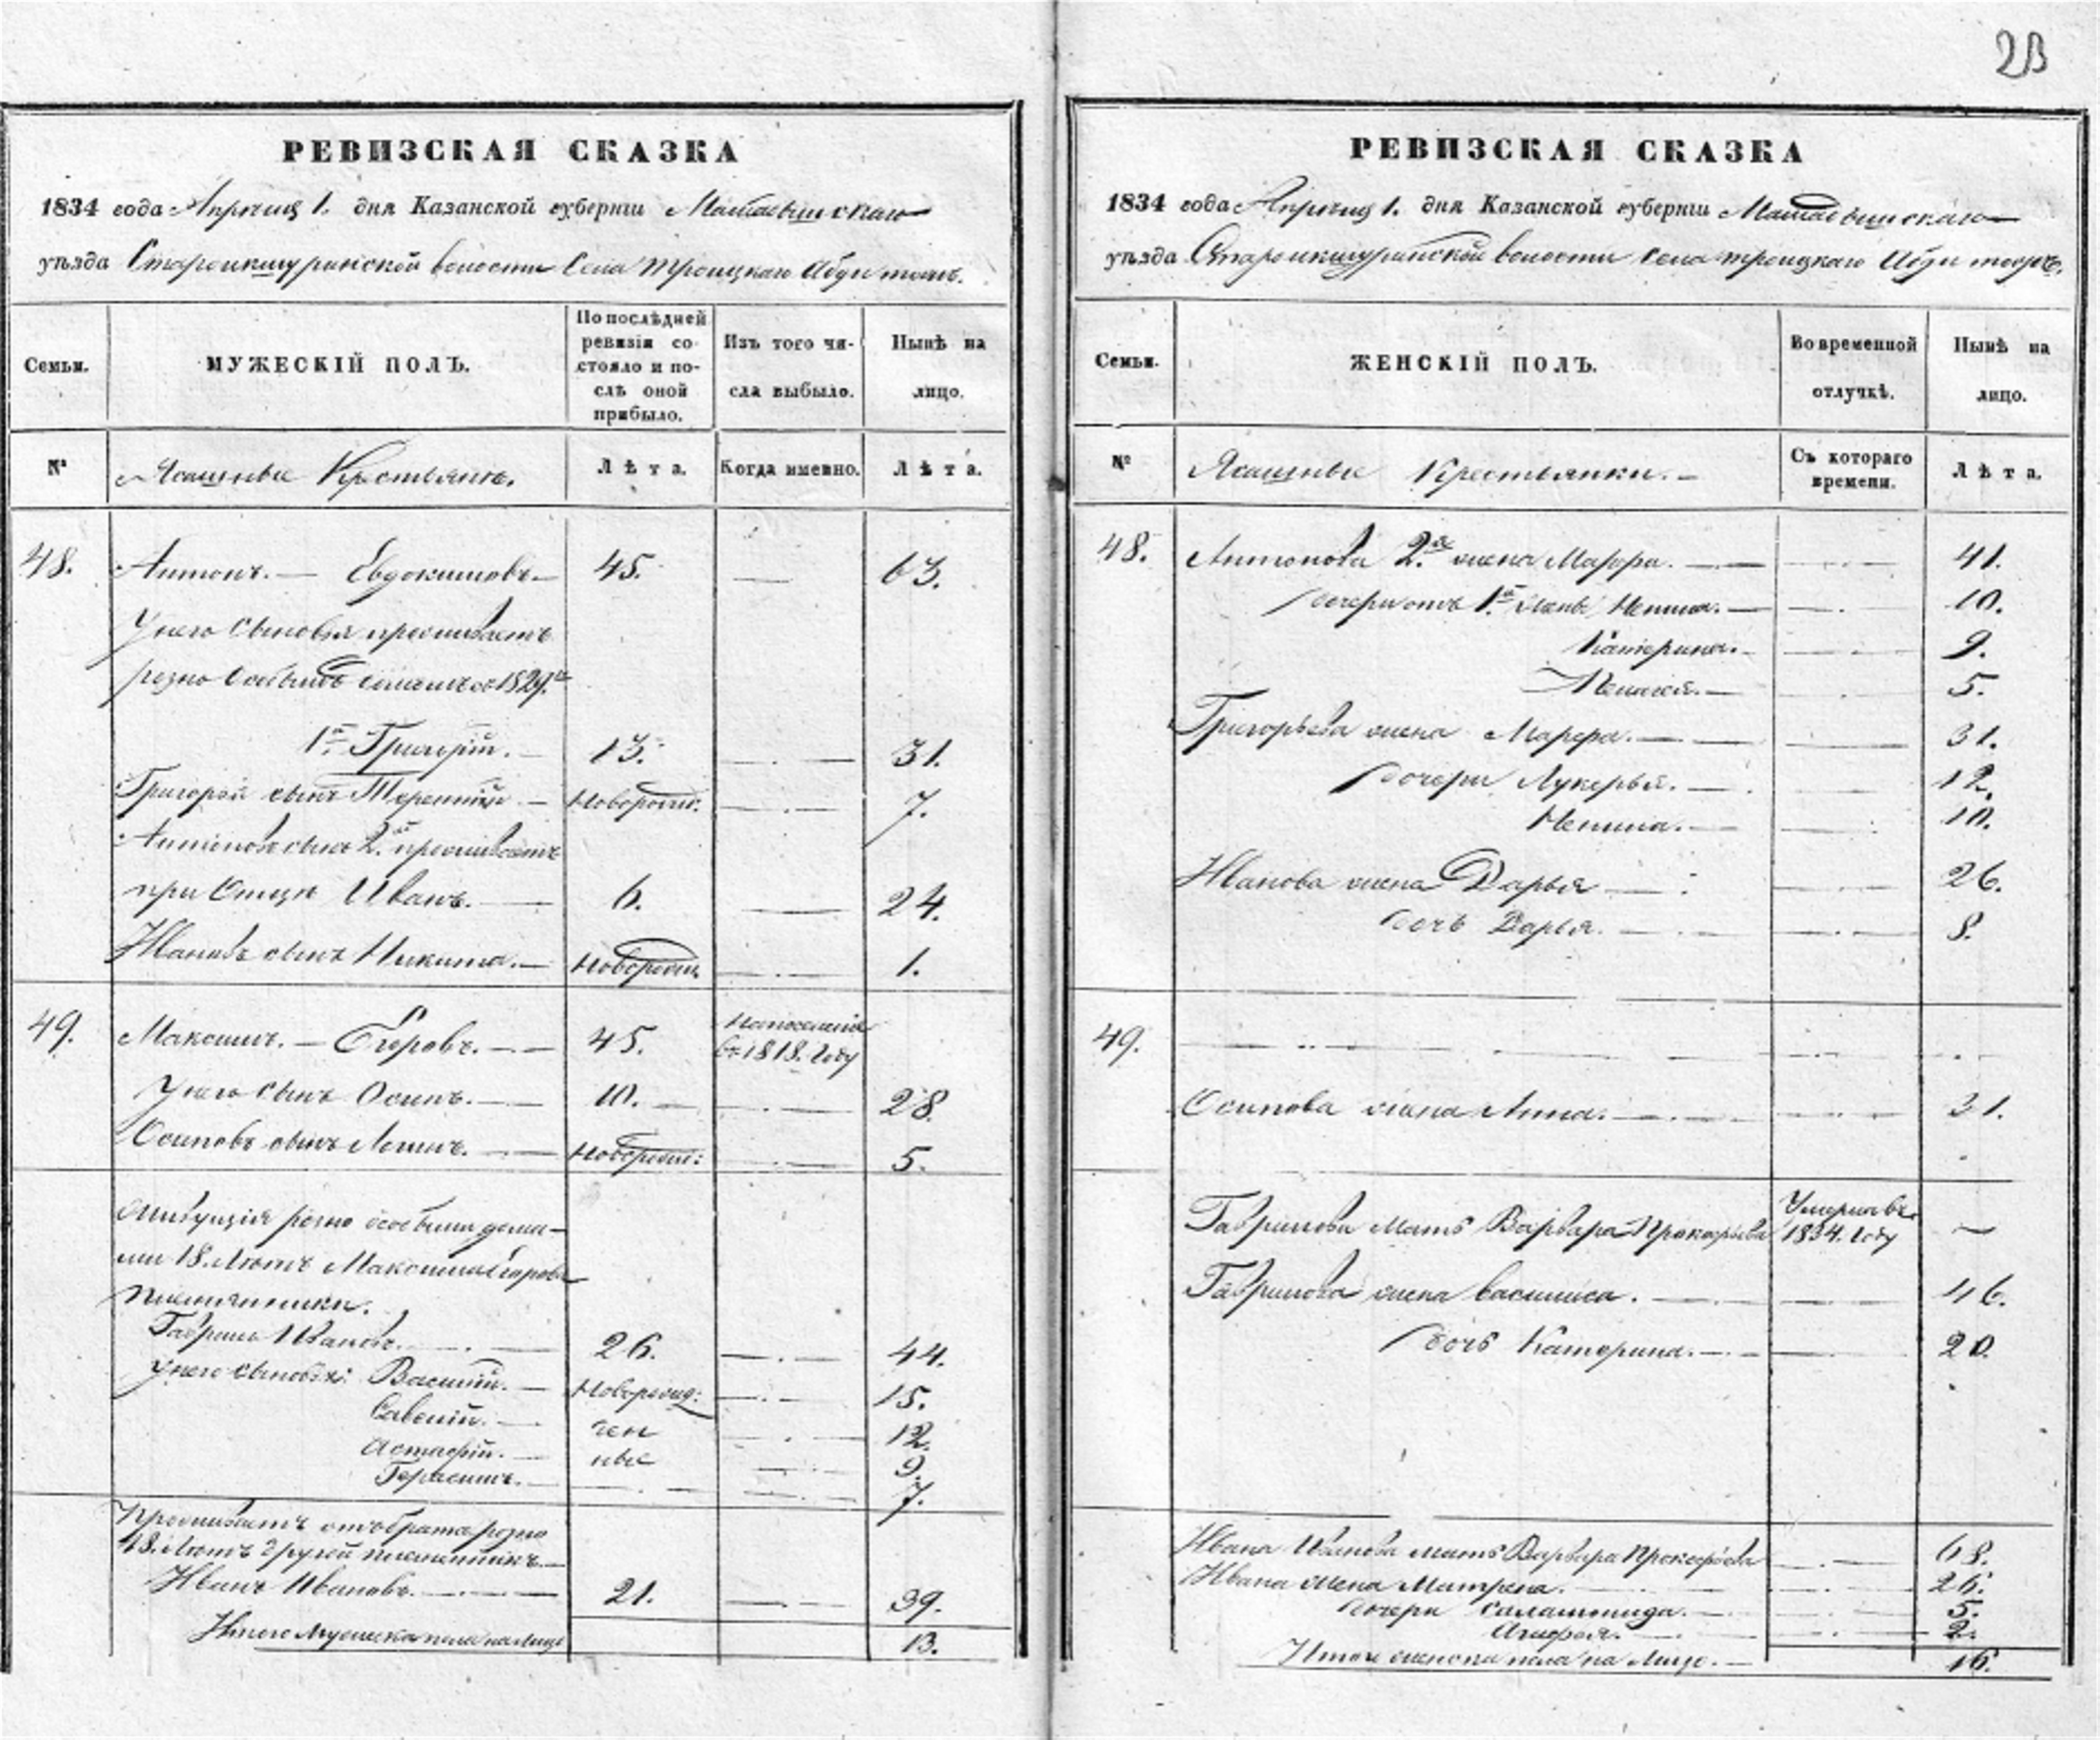 23
РЕВИЗСКАЯ СКАЗКА
1834 года Апреля 1. дня Казанской губернии Мамадышскаго
уѣзда Старо волости Села Троицкаго Абди тожъ.
Семьи.
МУЖЕСКІЙ ПОЛЪ.
По послѣдней ревизіи состояло и послѣ оной прибыло.
Изъ того числа выбыло.
Нынѣ на лицо.
№
Ясашные Крестьяне.
Лѣта.
Когда именно.
Лѣта.
48. Антонъ. — Евдокимовъ — 45. — 63.
У него сыновья проживаетъ
розно особымъ съ 1829.го
1й Григорій. — 13. — 31.
Григорьевъ сынъ Терентій. — Новорожд. — 7.
Антоновъ сынъ 2.й проживаетъ
при Отцѣ Иванъ. — 6. — 24.
Ивановъ сынъ Никита. — Новорожд. — 1.
49. Максимъ. — Егоровъ. — 45. въ 1818. году
У него сынъ Осипъ. — 10. — 28.
Осиповъ сынъ — Новорожд: — 5.
розно особыми дома-
ми 18. лѣтъ Максима Егорова
племянники.
Гаврила Ивановъ. 26. — 44.
У него сыновья: Василий. — Новорожд: — 15.
Савелій. — ден — 12.
Астафій. — ные — 9.
Герасимъ. — 7.
Проживаетъ отъ брата розно
18. лѣтъ другой племянникъ —
Иванъ Ивановъ. — 21. — 39.
Итого Мужеска пола на Лицо 13.
РЕВИЗСКАЯ СКАЗКА
1834 года Апреля 1. дня Казанской губернии Мамадышскаго
уѣзда Старо волости Села Троицкаго Абди тожъ.
Семьи.
ЖЕНСКІЙ ПОЛЪ.
Во временной отлучкѣ.
Нынѣ на лицо.
№
Ясашные Крестьянки. —
Съ котораго времени.
Лѣта.
48. Антонова 2.я жена Марфа. — 41.
дочери отъ 1.й жены — 10.
Катерина. — 9.
— 5.
Григорьева жена Марфа. — 31.
дочери Лукерья. — 12.
— 10.
Иванова жена Дарья — 26.
дочь Дарья. — 8.
49.
Осипова жена Анна. — 31.
Гаврилова Мать Варвара Прокофьева Умерла въ 1834. году —
Гаврилова жена Василиса. — 46.
дочь Катерина. — 20.
Ивана Иванова мать Варвара Прокофьева — 68.
Ивана жена Матрена. — 26.
дочери Саламонида. — 5.
— 2.
Итого женска пола на Лицо. — 16.